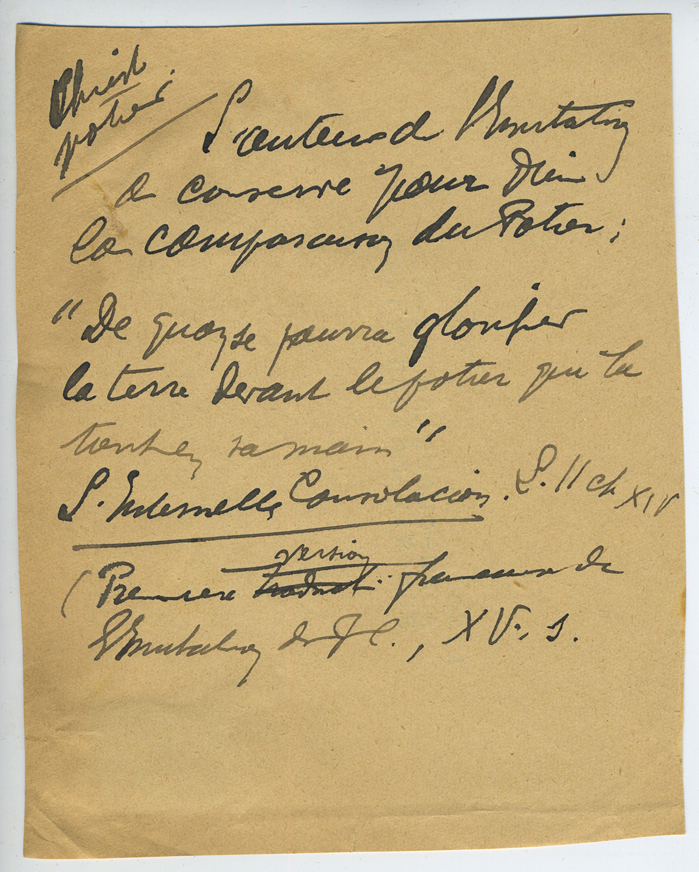 Christ
potier
L'auteur de l'Imitation
a conservé pour Dieu
la comparaison du Potier :
"De quoy se pourra glorifier
la terre devant le potier qui la
tient en sa main"
L'Internelle Consolacion. L. II ch XIV
(Première version française de
l'Imitation de J C., XVe s.